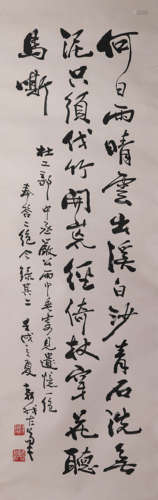 何日雨晴雲出溪白沙青石洗無
泥只須伐竹開荒徑倚杖穿花聽
馬嘶
杜工部中丞嚴公雨中垂寄見遺憶一絶
奉答二絶今錄其二 壬戌之夏